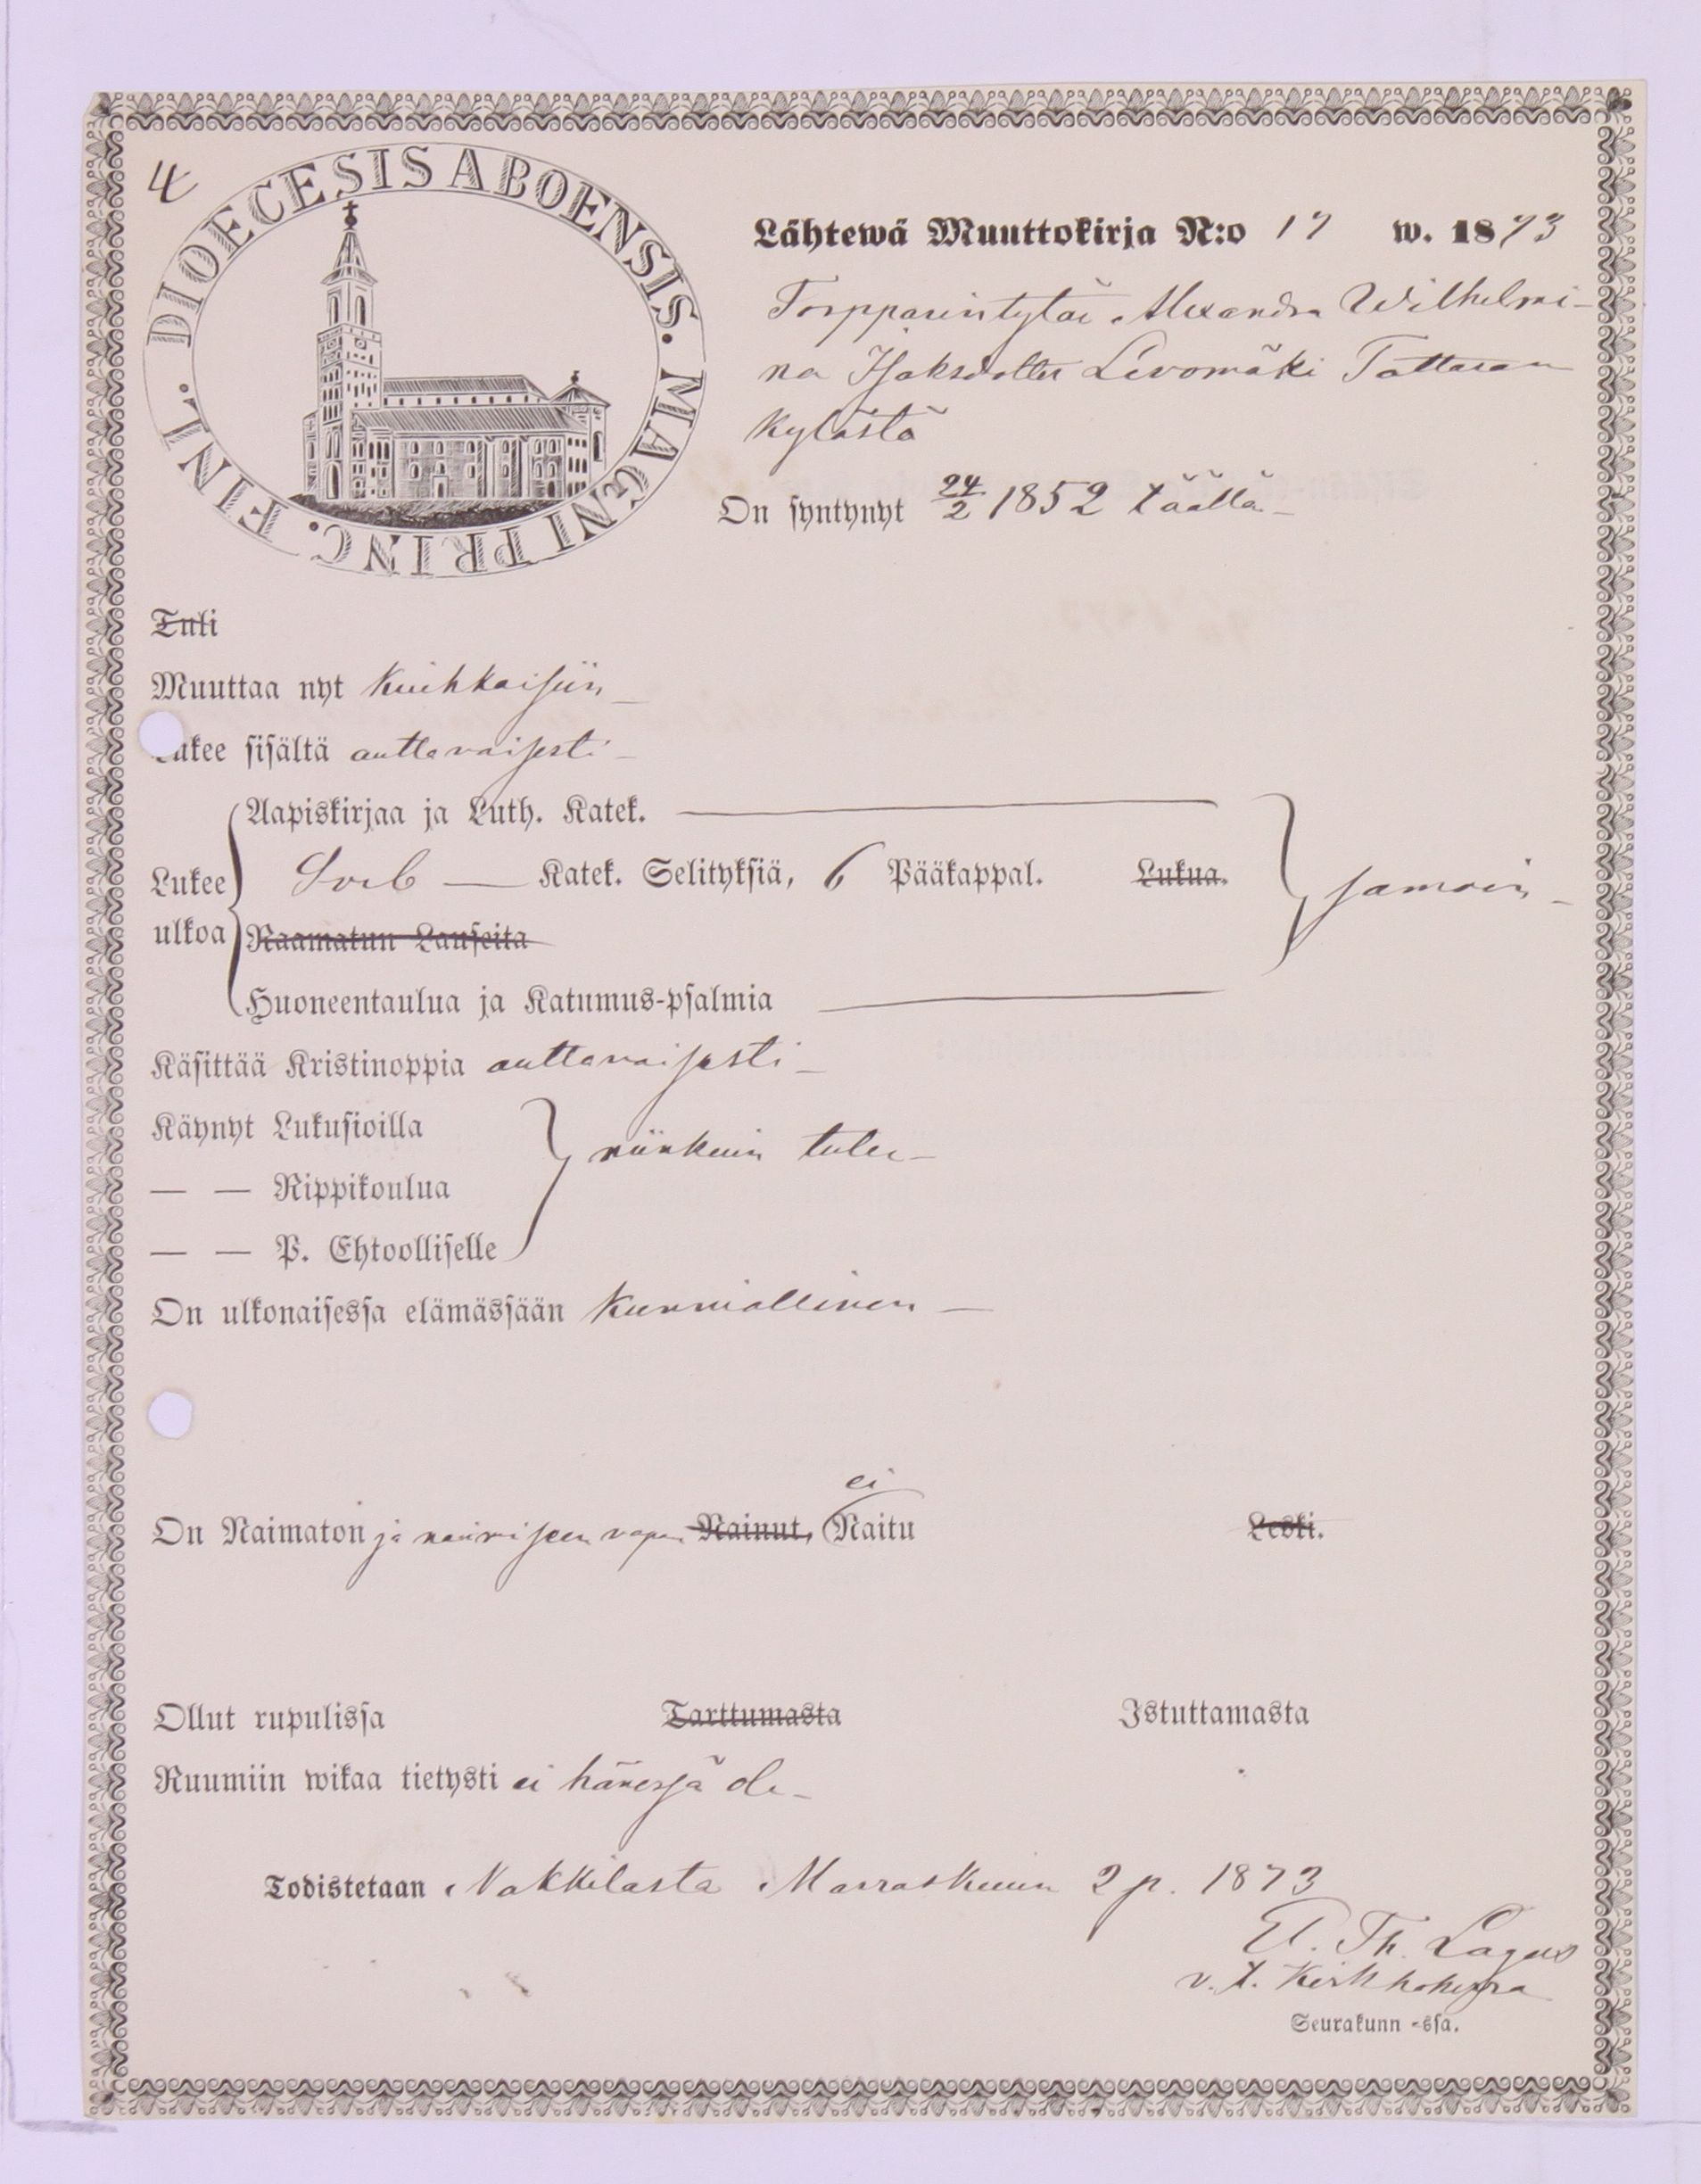 4
DIOECESIS ABOENSIS. MAGNI PRINC. FINL.
Lähtewä Muuttokirja N:o 17 w. 1873
Torpparintytär Alexandra Wilhelmi-
na Isaksdotter Levomäki Tattaran
kylästä
On syntynyt 24/2 1852 täällä
Tuli
Muuttaa nyt Kiukkaisiin
Lukee sisältä auttavaisesti
Aapiskirjaa ja Luth. Katek.
Lukee ulkoa Sveb Katek. Selityksiä, 6 Pääkappal. Lukua. samoin
Raamatun Lauseita
Huoneentaulua ja Katumus-psalmia
Käsittää Kristinoppia auttavaisesti
Käynyt Lukusioilla
niinkuin tulee
— — Rippikoulua
— — P. Ehtoolliselle
On ulkonaisessa elämässään kunniallinen
ei
On Naimaton ja naimiseen vapa Nainut, Naitu Leski.
Ollut rupulissa Tarttumasta Istuttamasta
Ruumiin wikaa tietysti ei hänessä ole
Todistetaan Nakkilasta Marraskuun 2 p. 1873
Th. Lagus
v. t. Kirkkoherra
Seurakunn -ssa.